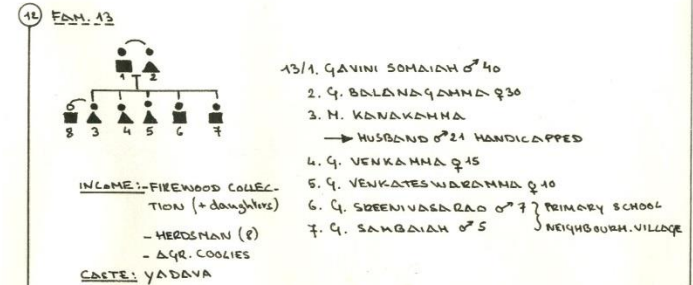 12 FAM. 13
1 2
8 3 4 5 6 7
13/1. GAVINI SOMAIAH ♂ 40
2. G. BALANAGAMMA ♀30
3. M. KANAKAMMA
→ HUSBAND ♂21 HANDICAPPED
4. G. VENKAMMA ♀ 15
5. G. VENKATESWARAMMA ♀ 10
6. G. SREENIVASARAO ♂ 7 } PRIMARY SCHOOL
7. G. SAMBAIAH ♂ 5 NEIGHBOURH. VILLAGE
INCOME:- FIREWOOD COLLEC-
TION (+ daughters)
- HERDSMAN (8)
- AGR. COOLIES
CASTE: YADAVA